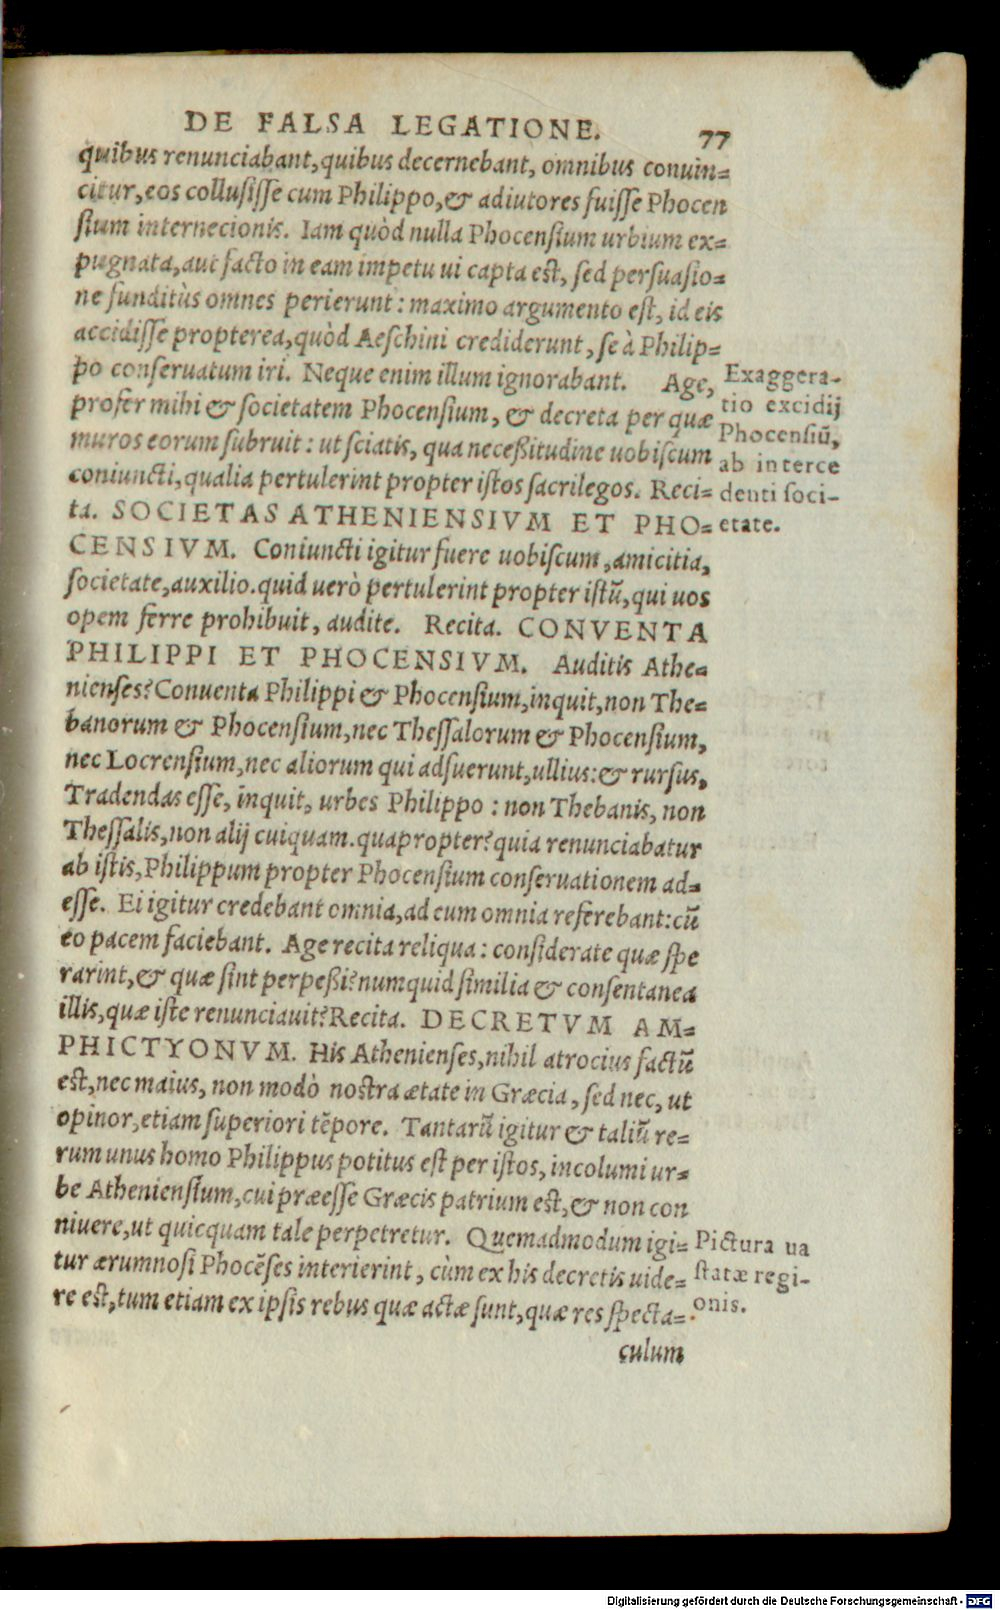 DE FALSA LEGATIONE. 77
quibus renunciabant, quibus decernebant, omnibus conuin=
citur, eos collusisse cum Philippo, & adiutores fuisse Phocen
sium internecionis. Iam quòd nulla Phocensium urbium ex=
pugnata, aut facto in eam impetu ui capta est, sed persuasio=
ne funditùs omnes perierunt: maximo argumento est, id eis
accidisse propterea, quòd Aeschini crediderunt, se à Philip=
po conseruatum iri. Neque enim illum ignorabant. Age,
profer mihi & societatem Phocensium, & decreta per quæ
muros eorum subruit: ut sciatis, qua neceßitudine uobiscum
coniuncti, qualia pertulerint propter istos sacrilegos. Reci=
ta. SOCIETAS ATHENIENSIVM ET PHO=
CENSIVM. Coniuncti igitur fuere uobiscum, amicitia,
societate, auxilio. quid uerò pertulerint propter istũ, qui uos
opem ferre prohibuit, audite. Recita. CONVENTA
PHILIPPI ET PHOCENSIVM. Auditis Athe=
nienses? Conuenta Philippi & Phocensium, inquit, non The=
banorum & Phocensium, nec Thessalorum & Phocensium,
nec Locrensium, nec aliorum qui adfuerunt, ullius: & rursus,
Tradendas esse, inquit, urbes Philippo: non Thebanis, non
Thessalis, non alij cuiquam. quapropter? quia renunciabatur
ab istis, Philippum propter Phocensium conseruationem ad=
esse. Ei igitur credebant omnia, ad eum omnia referebant: cũ
eo pacem faciebant. Age recita reliqua: considerate quæ spe
rarint, & quæ sint perpeßi? numquid similia & consentanea
illis, quæ iste renunciauit? Recita. DECRETVM AM=
PHICTYONVM. His Athenienses, nihil atrocius factũ
est, nec maius, non modò nostra ætate in Græcia, sed nec, ut
opinor, etiam superiori tẽpore. Tantarũ igitur & taliũ re=
rum unus homo Philippus potitus est per istos, incolumi ur=
be Atheniensium, cui præesse Græcis patrium est, & non con
niuere, ut quicquam tale perpetretur. Quemadmodum igi=
tur ærumnosi Phocẽses interierint, cùm ex his decretis uide=
re est, tum etiam ex ipsis rebus quæ actæ sunt, quæ res specta=
culum
Exaggera-
tio excidij
Phocensiũ,
ab interce
denti soci-
etate.
Pictura ua
statæ regi-
onis.
Digitalisierung gefördert durch die Deutsche Forschungsgemeinschaft - DFG